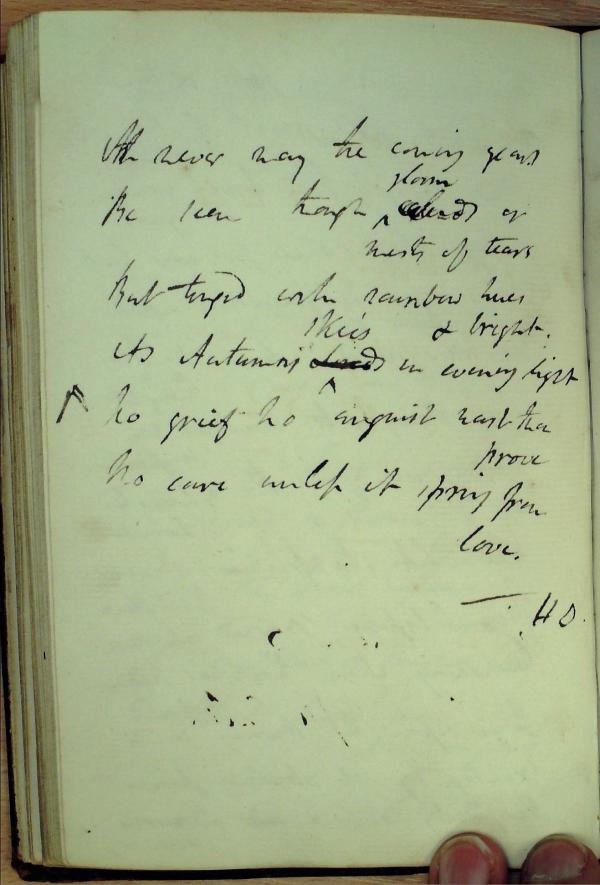 Ah never may the coming years
gloom
Be seen though clouds or
mists of tears
But tinged with rainbow hues
skies & bright.
As Autumns clouds in evening light
No grief No anguish mast thou
prove
No care unless it spring from
love.
H D.